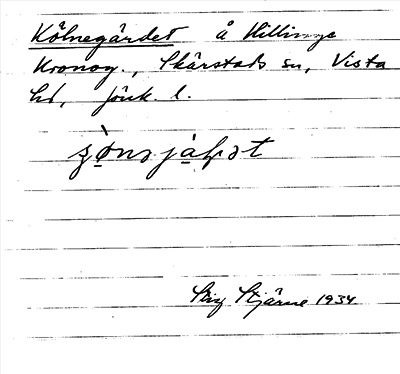 Kölnegärdet å Hillinge
Kronog., Skärstads sn, Vista
hd, Jönk. l.
Stig Stjärne 1934